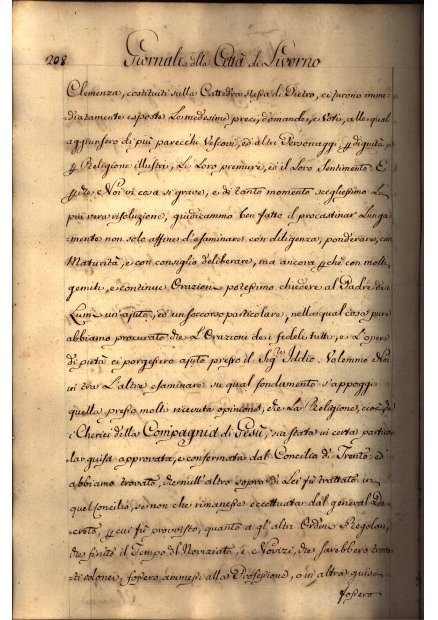 208 Giornale della Città di Livorno
Clemenza, costituiti sulla Cattedra stessa di Pietro, ci furono imme-
diatamente esposte Le medesime preci, domande, e Voti, alle quali
aggiunsero di più parecchi Vescovi, ed altri Personaggi, per dignità
e Religione illustri, Le Loro premure, ed il Loro Sentimento. E
perche Noi in cosa sì grave, e di tanto momento scegliessimo La
più vera risoluzione, giudicammo ben fatto il procrastinar Lunga-
mente non solo affine d'esaminare con diligenza, ponderare con
Maturità, e con consiglio deliberare, ma ancora perche con molti
gemiti, e continue Orazioni potessimo chiedere al Padre dei
Lumi un ajuto, ed un soccorso particolare, nella qual cosa pure
abbiamo procurato che L'Orazioni dei fedeli tutti, e L'opere
di pietà ci porgessero ajuto presso il Sigre Iddio. Volemmo Noi
in tra L'altre esaminare su qual fondamento s'appoggi
quella presso molti ricevuta opinione, che La Religione, cioè de
i Cherici della Compagnia di Gesù, sia stata in certa partico-
lar guisa approvata, e confermata dal Concilio di Trento, ed
abbiamo trovato, che niull'altro sopra di Lei fù trattato in
quel Concilio, se non che rimanesse eccettuata dal general De-
creto, per cui fù provvisto, quanto a gl'altri Ordini Regolari,
che finito il Tempo del Noviziato, i Novizi, che sarebbero trova-
ti idonei, fossero ammessi alla Professione, o in altra guisa
fossero